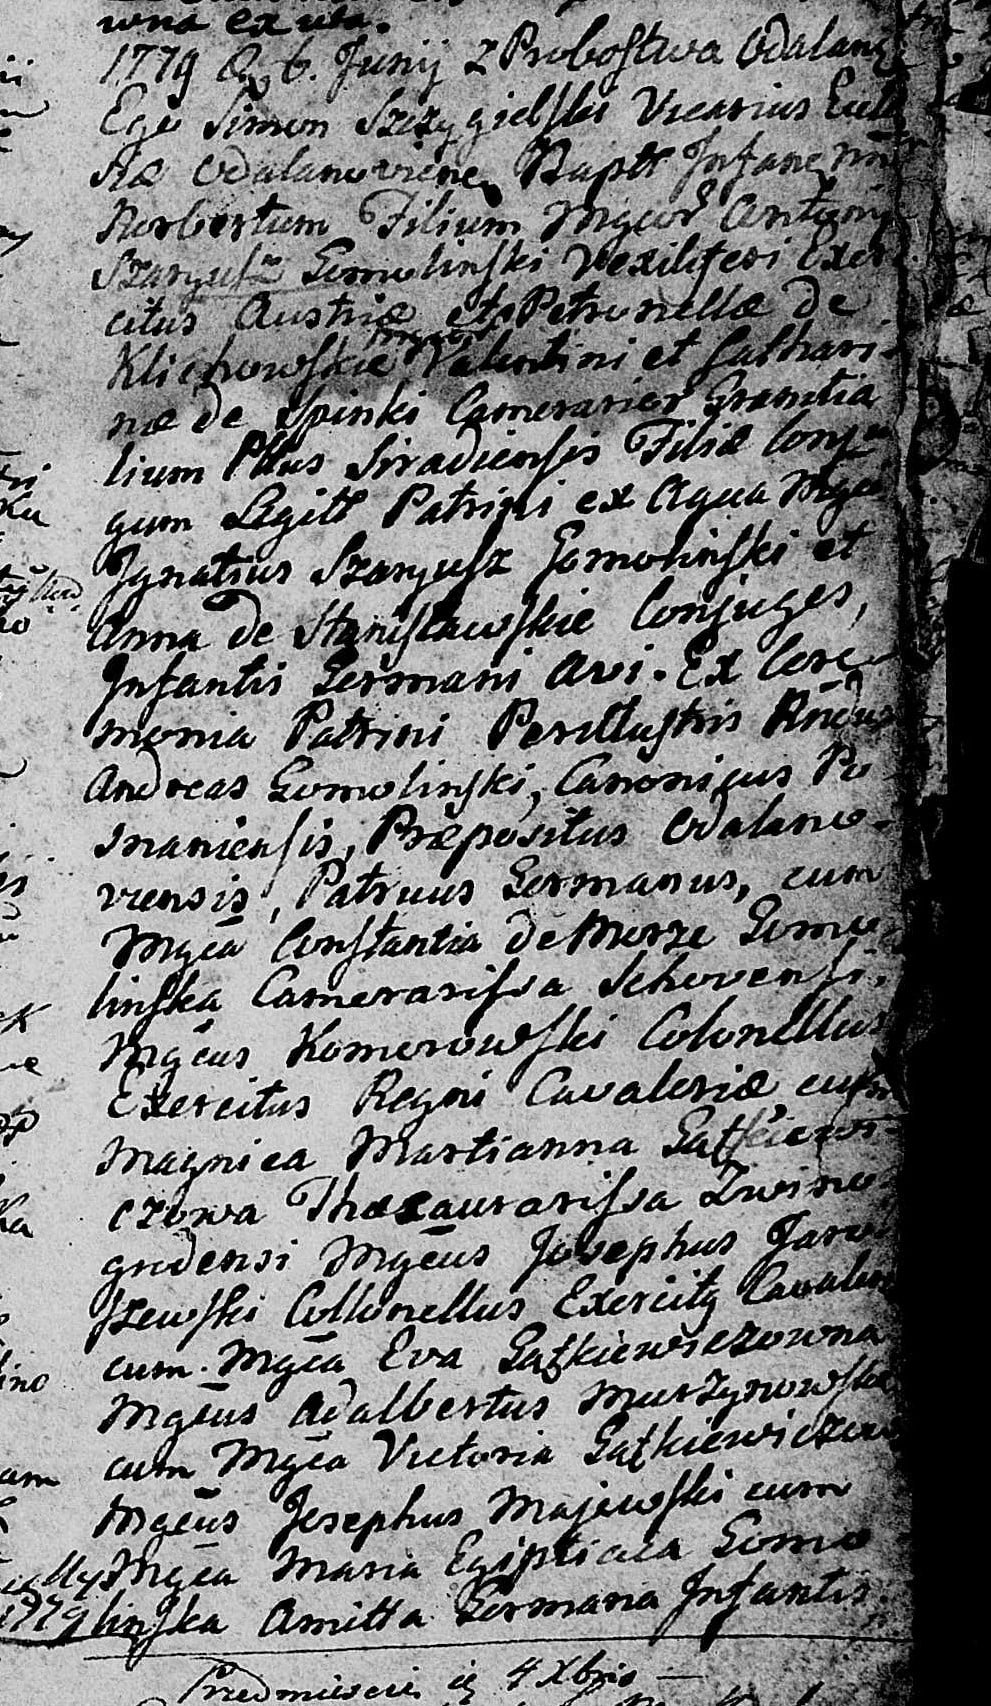 wna ex uta.
1779 D. 6. Junij z Probostwa Odalano
Ego Simon Szczygielski Vicarius Eccle
siæ Odalanoviene Baptt Infane nne
Norbertum Filium Mgcor Antonij
Szarjusz Gomolinski Vexiliferi Exer
citus Austriæ et Petronellæ de
Klichowskie Mgcor Valentini et Cathari
næ de Spinki Camerarior Granitia
lium Pttus Siradiensis Filiæ Conju
gum Legitt Patrini ex Aqua Mgcus
Ignatius Szarjusz Gomolinski et
Anna de Stanisławskie Conjuges,
Infantis Germani Avi. Ex Cere
monia Patrini Perillustris Rndus
Andreas Gomolinski, Canonicus Po
snaniensis, Præpositus Odalano-
viensis, Patruus Germanus, cum
Mgca Constantia de Morze Gomo
linska Camerarissa Schovensi,
Mgcus Komorowski Colonellus
Exercitus Regni Cavaleriæ cum
Magnica Martianna Gątkiewi-
czowa Thæzaurarissa Zwino
grodensi Mgcus Josephus Jaro
szewski Collonellus Exercitq Cavaler
cum Mgca Eva Gątkiewiczowna
Mgcus Adalbertus Murzynowski
cum Mgca Victoria Gątkiewiczow
Mgcus Josephus Majewski cum
Mgca Maria Egiptiaca Gomo
1779 linska Amitta Germana Infantis.
Przedmiescie 4 Xbris —